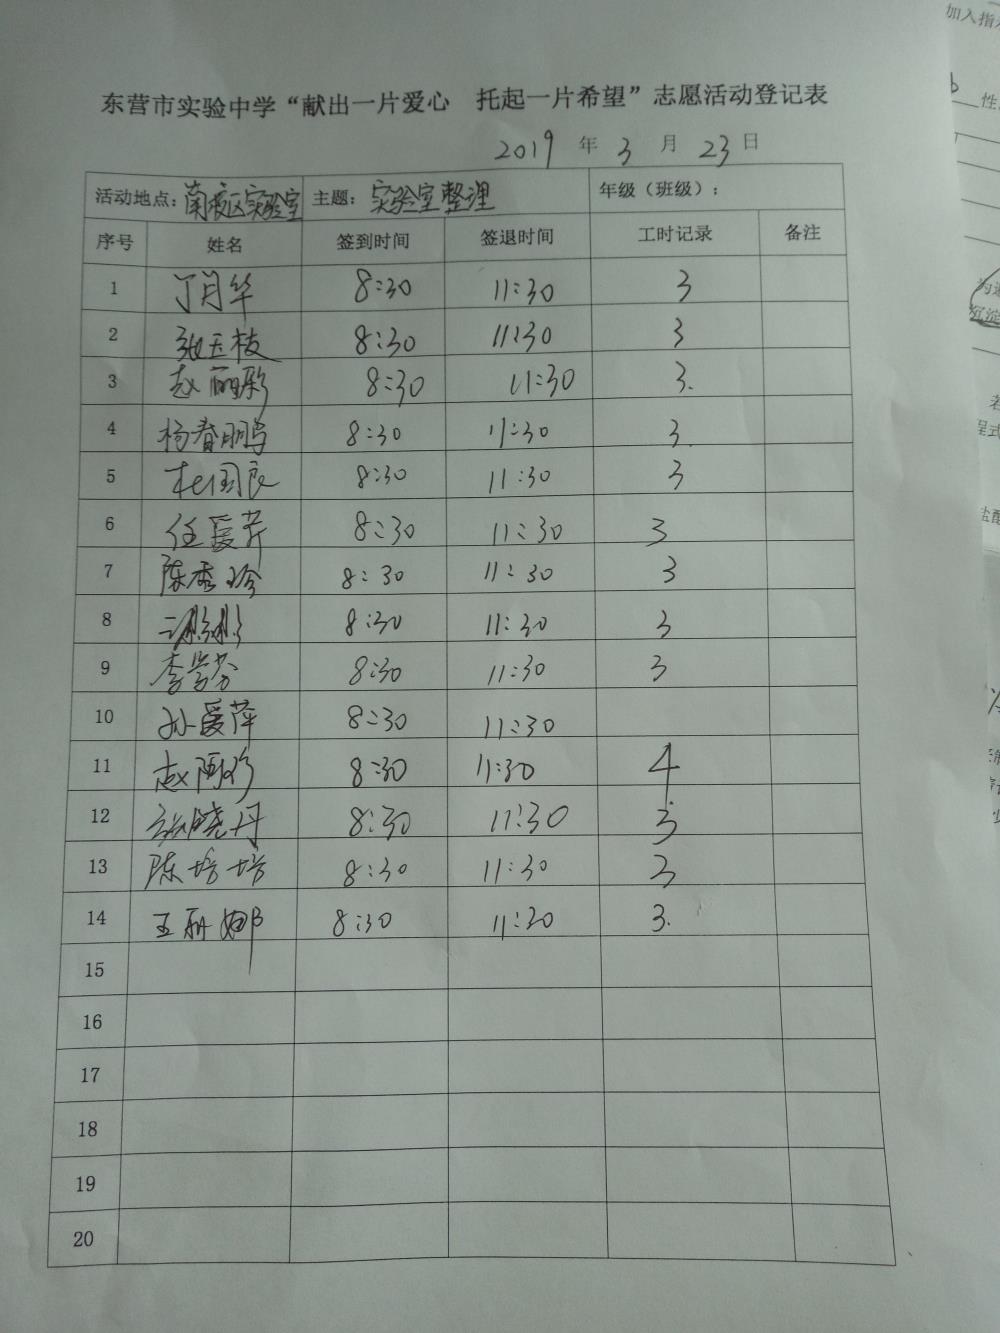 东营市实验中学“献出一片爱心 托起一片希望”志愿活动登记表
2019 年 3 月 23 日
活动地点：南校区实验室 主题：实验室整理 年级（班级）：
序号 姓名 签到时间 签退时间 工时记录 备注
1 丁月华 8:30 11:30 3
2 张玉枝 8:30 11:30 3
3 赵丽彩 8:30 11:30 3.
4 杨春鹏 8:30 11:30 3.
5 杜国良 8:30 11:30 3
6 任爱芹 8:30 11:30 3
7 陈秀珍 8:30 11:30 3
8 8:30 11:30 3
9 李学芬 8:30 11:30 3
10 孙爱萍 8:30 11:30
11 赵 8:30 11:30 4
12 张晓丹 8:30 11:30 3
13 陈培培 8:30 11:30 3
14 王丽娜 8:30 11:30 3.
15
16
17
18
19
20
加入指
性
为
沉淀
若
程式
盐酸